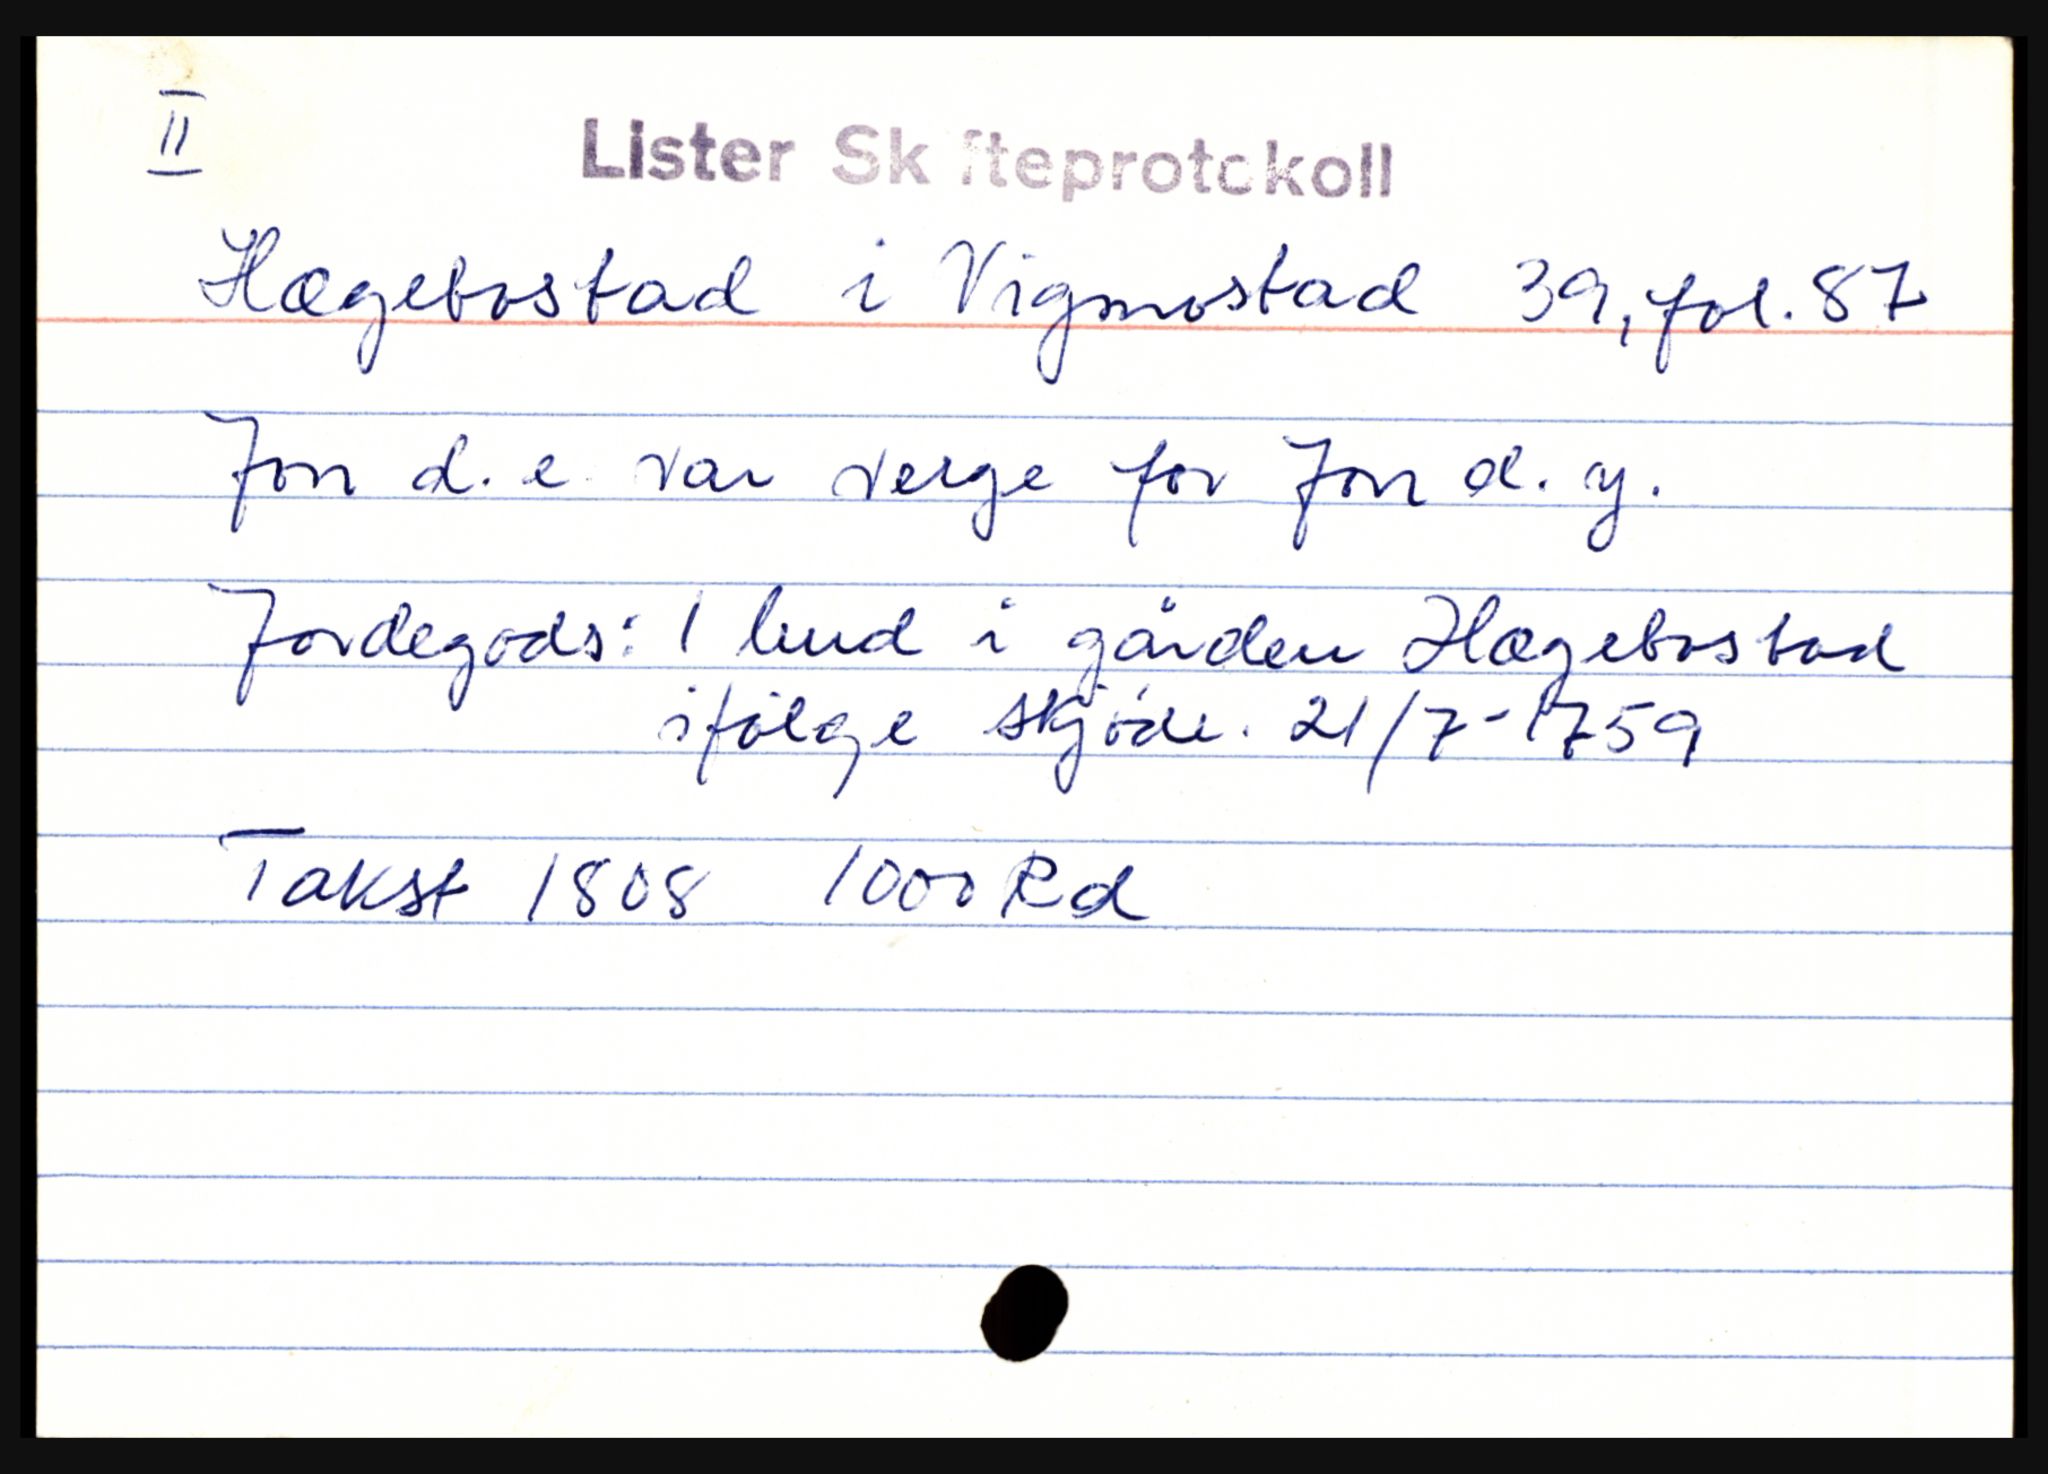 II
Lister Skifteprotokoll
Hægebostad i Vigmostad 39, fol. 87
Jon d. e. var verge for Jon d. y.
Jordegods: 1 hud i gården Hægebostad
ifølge skjøde. 21/7-1759
Takst 1808 1000 Rd